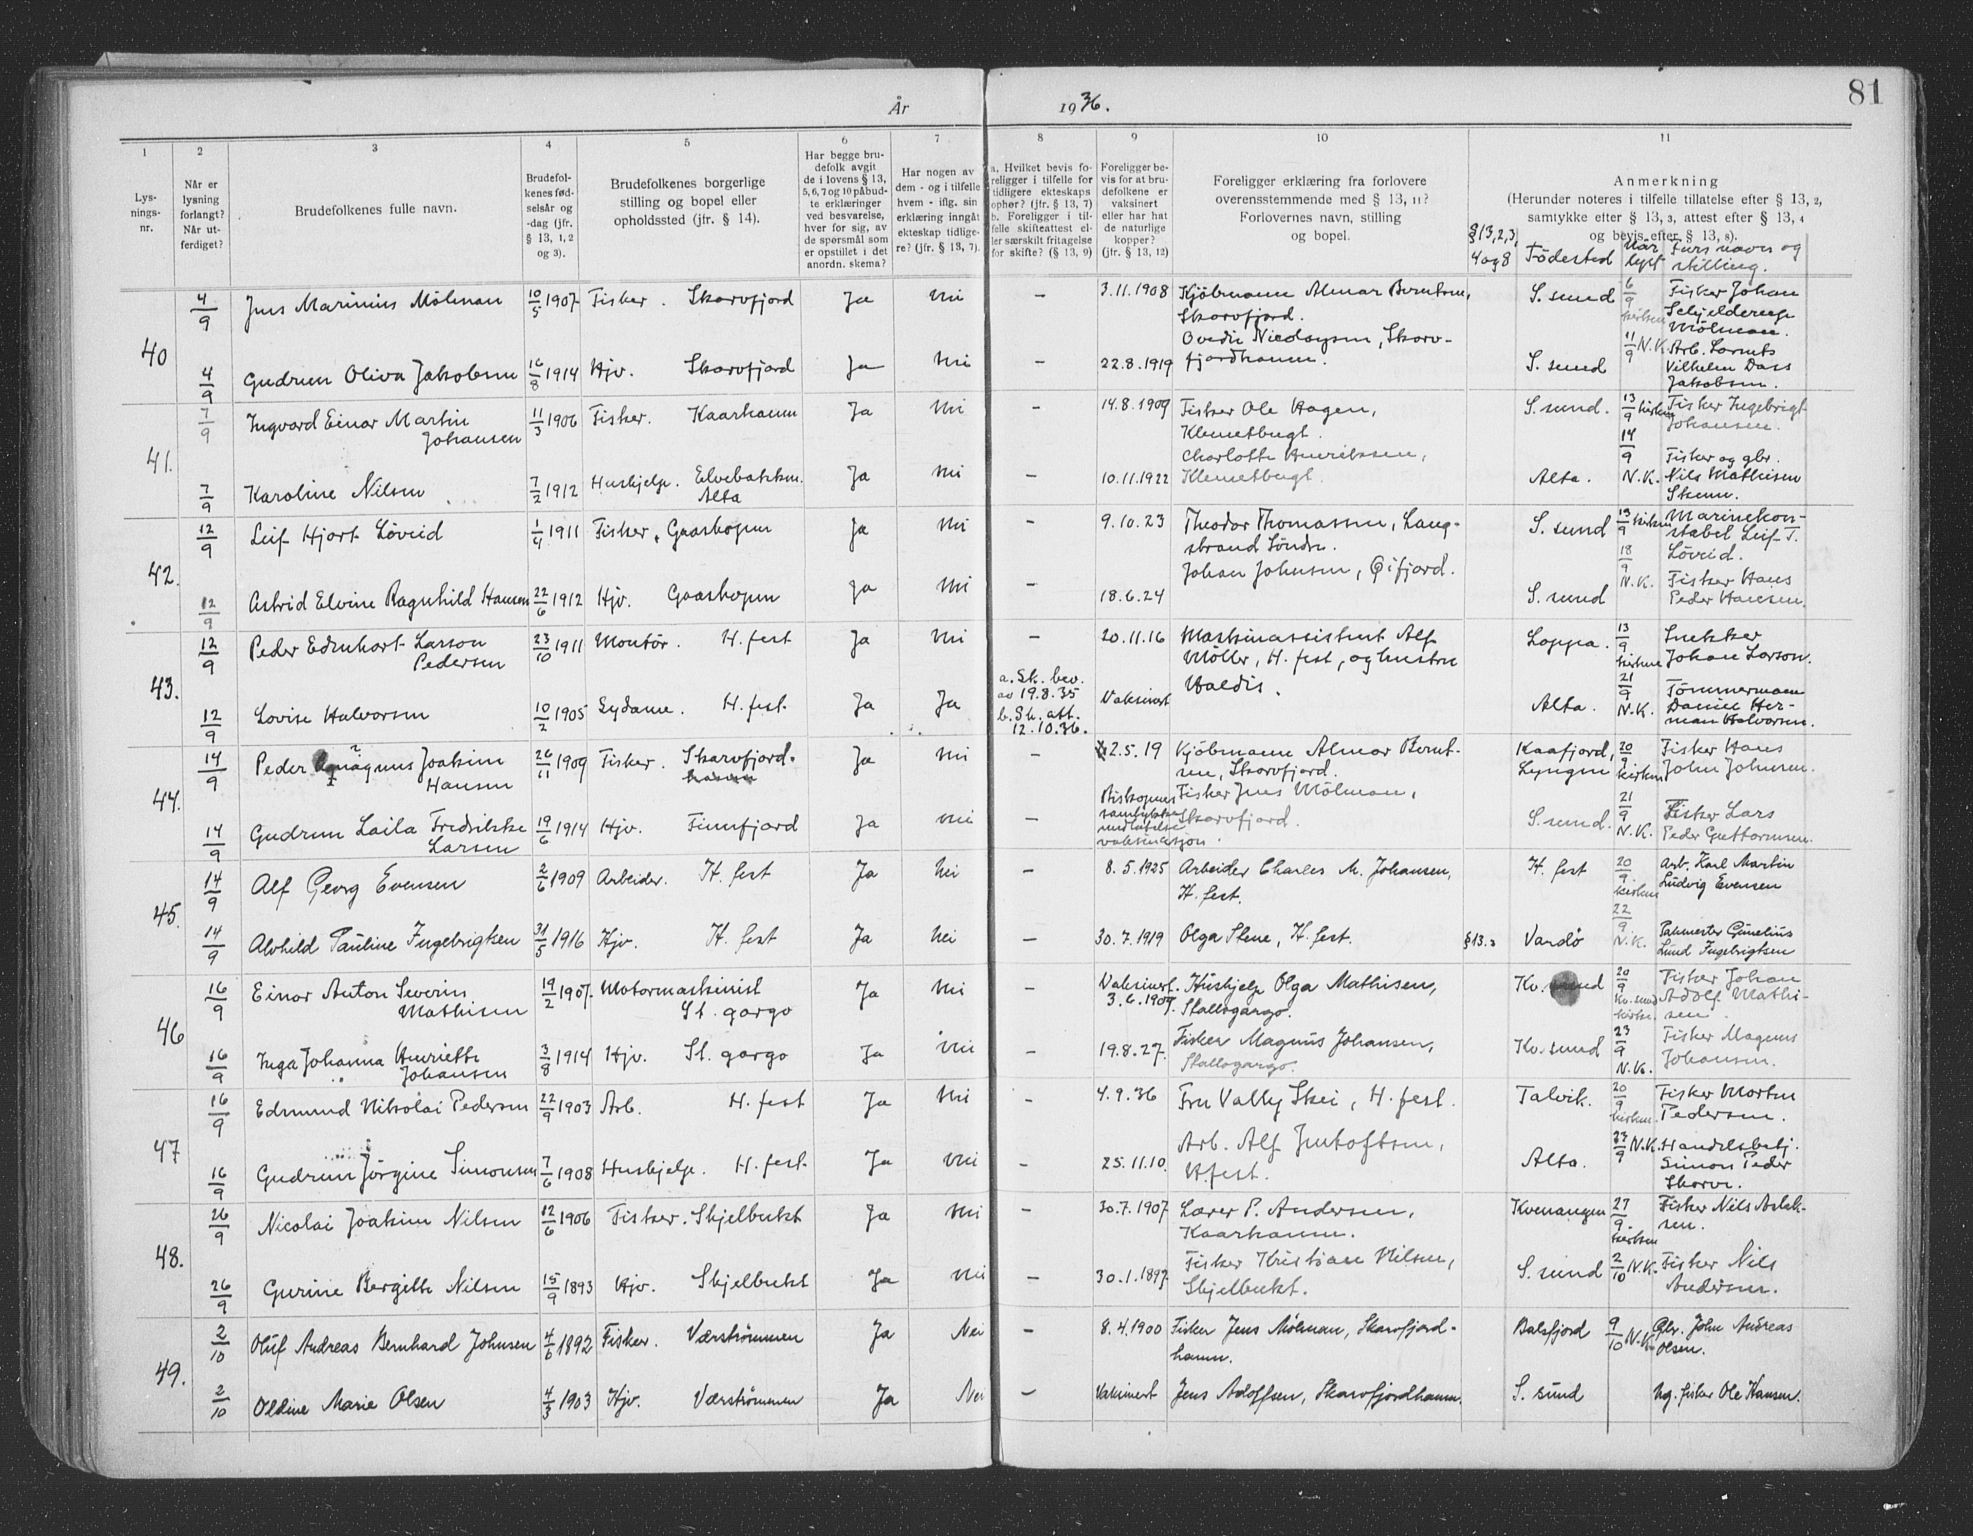 År 1936.
81
1 2 3 4 5 6 7 8 9 10 11
Lys-
nings-
nr.
Når er
lysning
forlangt?
Når ut-
ferdiget?
Brudefolkenes fulle navn.
Brudefol-
kenes fød-
selsår og
-dag (jfr.
§ 13, 1, 2
og 3).
Brudefolkenes borgerlige
stilling og bopel eller
opholdssted (jfr. § 14).
Har begge bru-
defolk avgit
de i lovens § 13,
5, 6, 7 og 10 påbud-
te erklæringer
ved besvarelse,
hver for sig, av
de spørsmål som
er opstillet i det
anordn. skema?
Har nogen av
dem - og i tilfelle
hvem - iflg. sin
erklæring inngått
ekteskap tidlige-
re? (jfr. § 13, 7).
a. Hvilket bevis fo-
religger i tilfelle for
tidligere ekteskaps
ophør? (jfr. § 13, 7)
b. Foreligger i til-
felle skifteattest el-
ler særskilt fritagelse
for skifte? (§ 13, 9)
Foreligger be-
vis for at bru-
defolkene er
vaksinert
eller har hat
de naturlige
kopper?
(jfr. § 13, 12)
Foreligger erklæring fra forlovere
overensstemmende med § 13, 11?
Forlovernes navn, stilling
og bopel.
Anmerkning
(Herunder noteres i tilfelle tillatelse efter § 13, 2,
samtykke efter § 13, 3, attest efter § 13, 4
og bevis efter § 13, 8).
§ 13, 2, 3,
4 og 8
Fødested
Når
lyst
Fars navn og
stilling.
40
4/9 Jens Marinius Mölman 10/5 1907 Fisker. Skarvfjord Ja Nei – 3.11.1908 Kjöbmann Almar Berntsen, S. sund 6/9 kirken Fisker Johan
Skarvfjord. Schjelderup
Ovedie Nicolaysen, Skarv- Mölman.
4/9 Gudrun Oliva Jakobsen 16/8 1914 Hjv. Skarvfjord Ja Nei – 22.8.1919 fjordhamn. S. sund 11/9 N.K. Arb. Lorents
Vilhelm Dass
Jakobsen.
41.
7/9 Ingvard Einar Martin 11/3 1906 Fisker. Kaarhamn Ja Nei – 14.8.1909 Fisker Ole Hagen, S. sund. 13/9 kirken Fisker Ingebrigt
Johansen Klemetbugt. Johansen.
Charlotte Henriksen, 14/9 Fisker og gbr.
7/9 Karoline Nilsen 7/2 1912 Hushjelp. Elvebakken. Ja Nei – 10.11.1922 Klemetbugt. Alta. N.K. Nils Mathisen
Alta
42.
12/9 Leif Hjort Løveid 1/4 1911 Fisker, Gaashopen Ja Nei – 9.10.23 Theodor Thomassen, Lang- S. sund 13/9 kirken Marinekon-
strand Söndre. stabel Leif T.
Johan Johnsen, Öifjord. 18/9 Löveid.
12/9 Astrid Elvine Ragnhild Hansen 22/6 1912 Hjv. Gaashopen Ja Nei – 18.6.24 S. sund N.K. Fisker Hans
Peder Hansen.
43.
12/9 Peder Edenhart Larson 23/10 1911 Montör. H. fest Ja Nei – 20.11.16 Maskinassistent Alf Loppa. 13/9 kirken Snekker
Pedersen Möller, H. fest, og hustru Johan Larson.
a. Sk. bev. Haldis. 21/9 Tömmermann
12/9 Lovise Halvorsen 10/2 1905 Sydame. H. fest. Ja Ja av 19.8.35 Vaksinert Alta. N.K. Daniel Her-
b. Sk. att. man Halvorsen.
12.10.36.
44.
14/9 Peder Magnus Joakim 26/11 1909 Fisker. Skarvfjord. Ja Nei – 2.5.19 Kjöbmann Almar Bernt- Kaafjord, 20/9 kirken Fisker Hans
Hansen hamn sen, Skarvfjord. Lyngen John Johnsen.
Biskopens Fisker Jens Mölman,
14/9 Gudrun Laila Fredrikke 19/6 1914 Hjv. Finnfjord Ja Nei – samtykke Skarvfjord. S. sund. 21/9 N.K. Fisker Lars
Larsen vaksinasjon. Peder Guttormsen.
45.
14/9 Alf Georg Evensen 2/6 1909 Arbeider. H. fest Ja Nei – 8.5.1925 Arbeider Charles M. Johansen, H. fest 20/9. kirken Arb. Karl Martin
H. fest. Ludvig Evensen
14/9 Alvhild Pauline Ingebrigtsen 31/5 1916 Hjv. H. fest Ja Nei – 30.7.1919 Olga Stene, H. fest. §13.3 Vardö 22/9 N.K. Pakmester
Lund Ingebrigtsen
46
16/9 Einar Anton Severin 19/2 1907. Motormaskinist Ja Nei – Vaksinert. Hushjelp Olga Mathisen, Kv. sund 20/9 Kv. sund kirke. Fisker Johan
Mathisen St. gargo 3.6.1909. Stallogargo. Adolf Mathi-
sen.
Fisker Magnus Johansen,
16/9 Inga Johanna Henriette 3/8 1914 Hjv. St. gargo Ja Nei – 19.8.27. Stallogargo. Kv. sund 23/9 N.K. Fisker Magnus
Johansen Johansen.
47
16/9 Edmund Nikolai Pedersen 22/9 1903 Arb. H. fest Ja Nei – 4.9.36 Fru Vally Skei, H. fest. Talvik. 20/9 kirken Fisker Morten
Pedersen.
Arb. Alf Jentoftsen,
16/9 Gudrun Jörgine Simonsen 7/6 1908 Hushjelp. H. fest. Ja Nei – 25.11.10. H.fest. Alta. 23/9 N.K. Handelsbetj.
Simon Peder
48.
26/9 Nicolai Joakim Nilsen 12/6 1906 Fisker. Skjelbukt Ja Nei – 30.7.1907 Lærer P. Andersen, Kvenangen 27/9. kirken Fisker Nils Aslak-
Kaarhamn. sen.
Fisker Kristian Nilsen,
26/9 Gurine Bergitte Nilsen 15/9 1893 Hjv. Skjelbukt Ja Nei – 30.1.1897 Skjelbukt. S. sund 2/10 N.K. Fisker Nils
Andersen.
49.
2/10 Oluf Andreas Bernhard Johnsen 4/6 1892 Fisker. Værströmmen Ja Nei – 8.4.1900 Fisker Jens Mölman, Skarvfjord- Balsfjord 9/10 N.K. Gbr. John Andreas
hamn. Olsen.
2/10 Oldine Marie Olsen 4/3 1903 Hjv. Værströmmen Ja Nei – Vaksinert Jens Adolfsen, Skarvfjordhamn. S. sund Ug. fisker Ole Hansen.